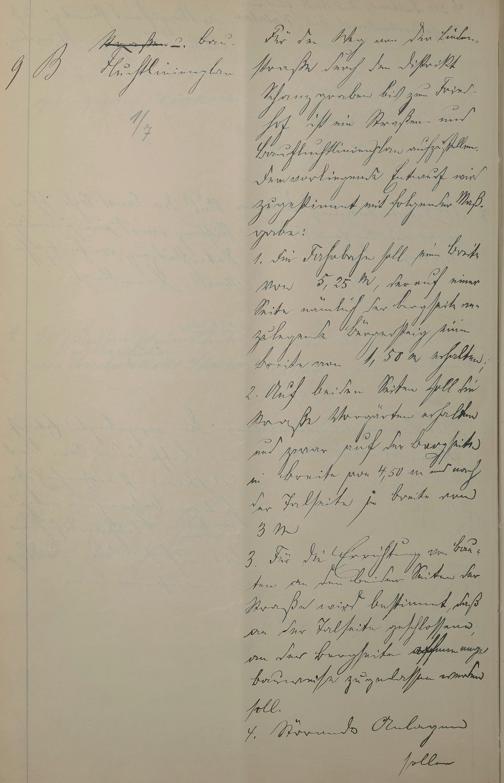 9 B
Straßen u. Bau-
fluchtlinienplan
1/7
Für den Weg von der Linden-
straße durch den Distrikt
Schanzgraben bis zum Fried-
hof ist ein Straßen- und
Baufluchtlinienplan aufzustellen.
Dem vorliegende Entwurf wird
zugestimmt mit folgender Maß-
gabe:
1. Die Fahrbahn soll eine Breite
von 5,25 M, der auf einer
Seite nämlich der Bergseite an-
zulegende Bürgersteig eine
Breite von 1,50 m erhalten;
2. Auf beiden Seiten soll die
Straße Vorgärten erhalten
und zwar auf der Bergseite
in Breite von 4,50 m und nach
der Talseite in Breite von
3 M
3. Für die Errichtung von Bau-
ten an den beiden Seiten der
Straße wird bestimmt, daß
an der Talseite geschlossene,
an der Bergseite offene
Bauweise zugelassen werden
soll.
4. Störende Anlagen
sollen